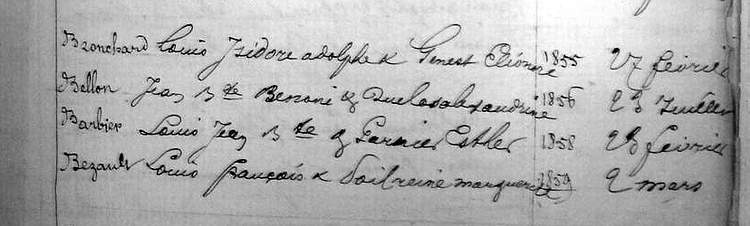 Bronchard Louis Isidore adolphe & Genest Eléonore 1855 27 février
Bellon Jean Bte Benoni & alexandrine 1856 23 Juillet
Barbier Louis Jean Bte & Garnier Esther 1858 20 février
Bezault Louis françois & marguerite 1859 2 mars